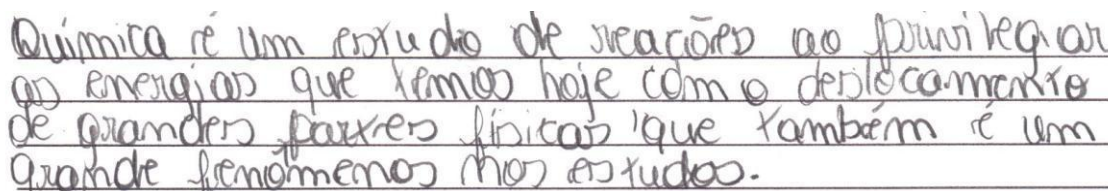 Química é um estudo de reações ao privilegiar
as energias que temos hoje com o deslocamento
de grandes partes físicas que também é um
grande fenômenos nos estudos.